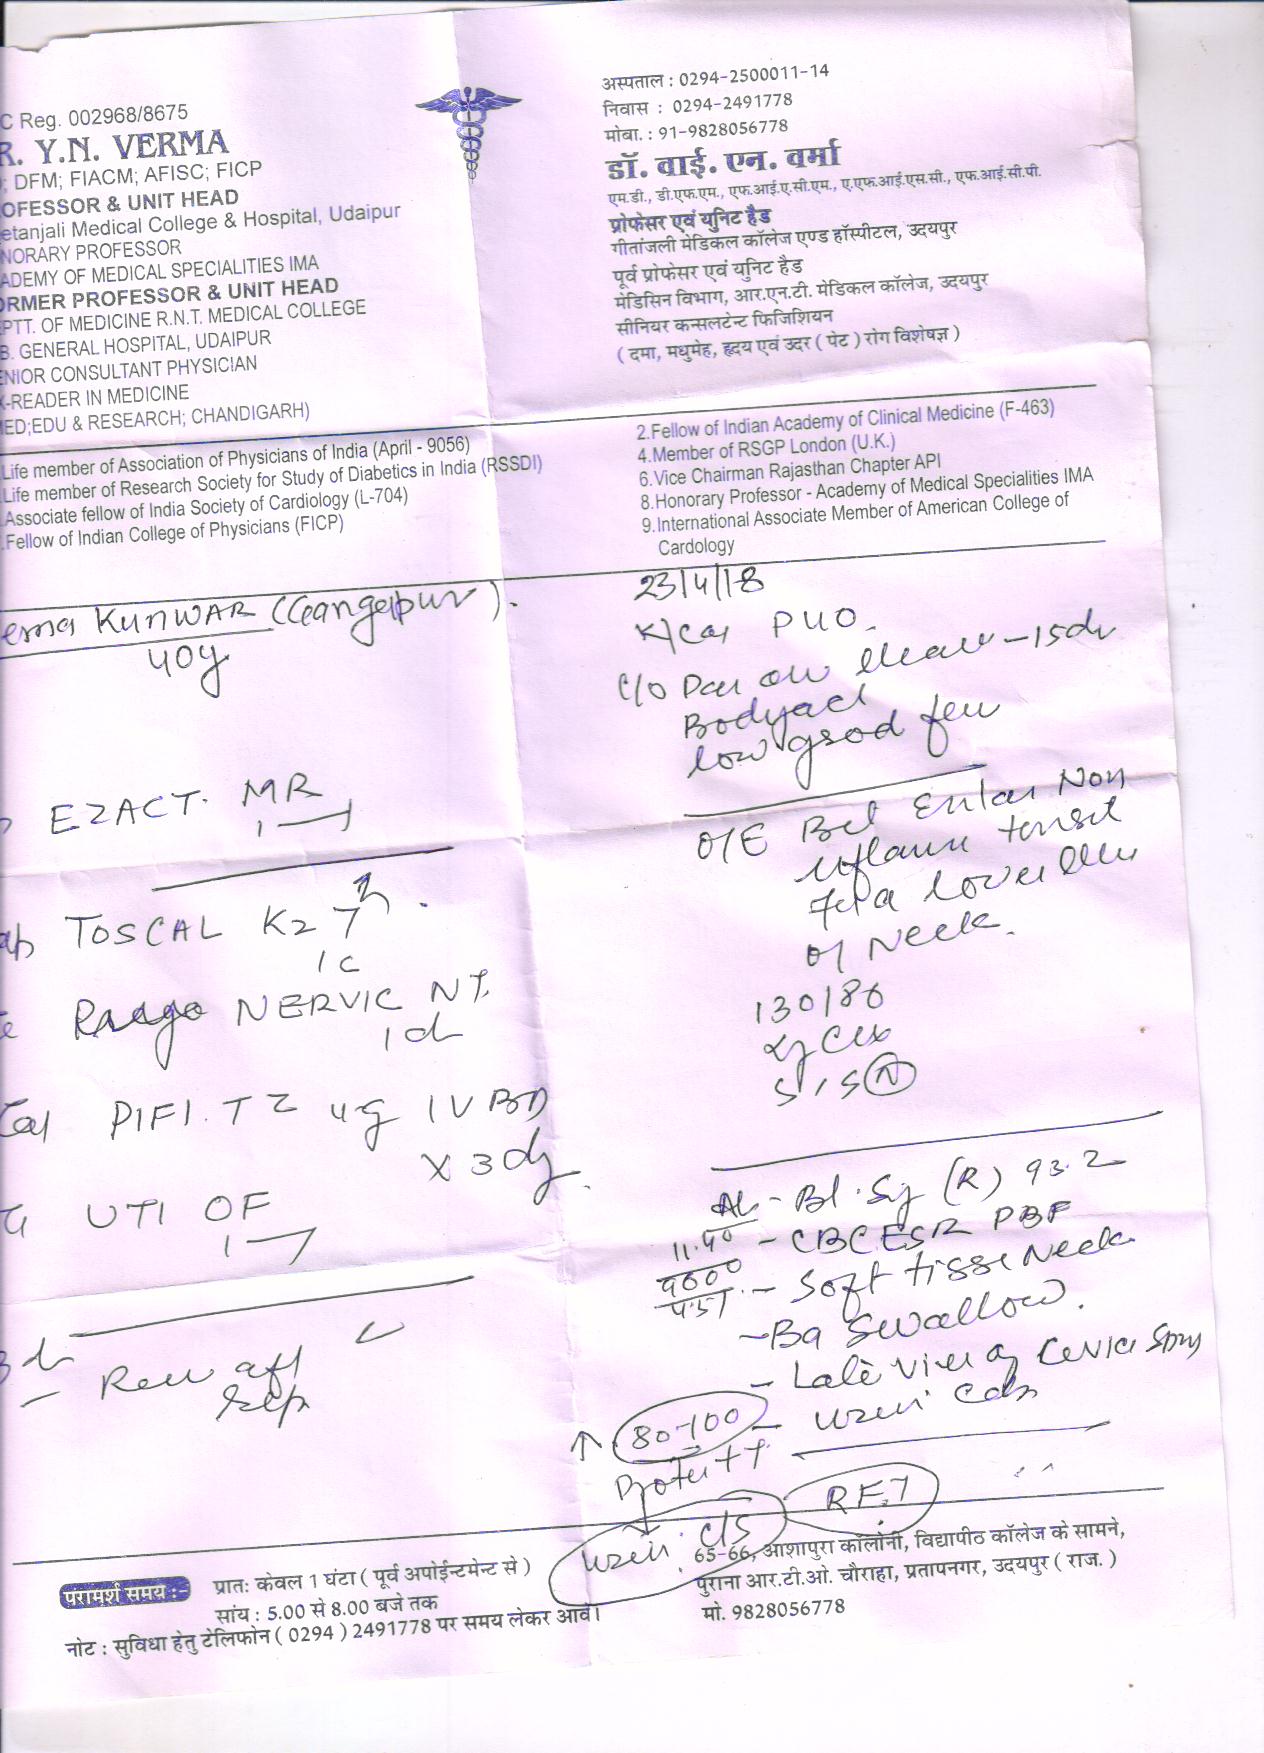 C Reg. 002968/8675
R. Y.N. VERMA
; DFM; FIACM; AFISC; FICP
OFESSOR & UNIT HEAD
etanjali Medical College & Hospital, Udaipur
NORARY PROFESSOR
ADEMY OF MEDICAL SPECIALITIES IMA
ORMER PROFESSOR & UNIT HEAD
PTT. OF MEDICINE R.N.T. MEDICAL COLLEGE
B. GENERAL HOSPITAL, UDAIPUR
ENIOR CONSULTANT PHYSICIAN
X-READER IN MEDICINE
MED;EDU & RESEARCH; CHANDIGARH)
अस्पताल : 0294-2500011-14
निवास : 0294-2491778
मोबा. : 91-9828056778
डॉ. वाई. एन. वर्मा
एम.डी., डी.एफ.एम., एफ.आई.ए.सी.एम., ए.एफ.आई.एस.सी., एफ.आई.सी.पी.
प्रोफेसर एवं यूनिट हैड
गीतांजली मेडिकल कॉलेज एण्ड हॉस्पीटल, उदयपुर
पूर्व प्रोफेसर एवं यूनिट हैड
मेडिसिन विभाग, आर.एन.टी. मेडिकल कॉलेज, उदयपुर
सीनियर कन्सलटेन्ट फिजिशियन
( दमा, मधुमेह, हृदय एवं उदर ( पेट ) रोग विशेषज्ञ )
Life member of Association of Physicians of India (April - 9056)
Life member of Research Society for Study of Diabetics in India (RSSDI)
Associate fellow of India Society of Cardiology (L-704)
Fellow of Indian College of Physicians (FICP)
2.Fellow of Indian Academy of Clinical Medicine (F-463)
4.Member of RSGP London (U.K.)
6.Vice Chairman Rajasthan Chapter API
8.Honorary Professor - Academy of Medical Specialities IMA
9.International Associate Member of American College of
Cardology
ema KUNWAR (Gangapur).
40y
EZACT. MR
1
TOSCAL K2 7
1c
NERVIC NT.
1d
PIFI.TZ 4g IV BD
x 3d
UTI OF
1
23/4/18
PUO
C/O
Bodyach
low grad
O/E
of Neck.
130/86
S1S (N)
- Bl. Sg (R) 93.2
11.40 - CBC ESR PBF
9000 - Soft tisse Neck
4.51
- Ba Swallow.
- Late View of
↑ 80-100
RFT
C/S
परामर्श समय :-
प्रातः केवल 1 घंटा ( पूर्व अपोईन्टमेन्ट से )
सांय : 5.00 से 8.00 बजे तक
नोट : सुविधा हेतु टेलिफोन ( 0294 ) 2491778 पर समय लेकर आवें।
65-66, आशापुरा कॉलोनी, विद्यापीठ कॉलेज के सामने,
पुराना आर.टी.ओ. चौराहा, प्रतापनगर, उदयपुर ( राज. )
मो. 9828056778